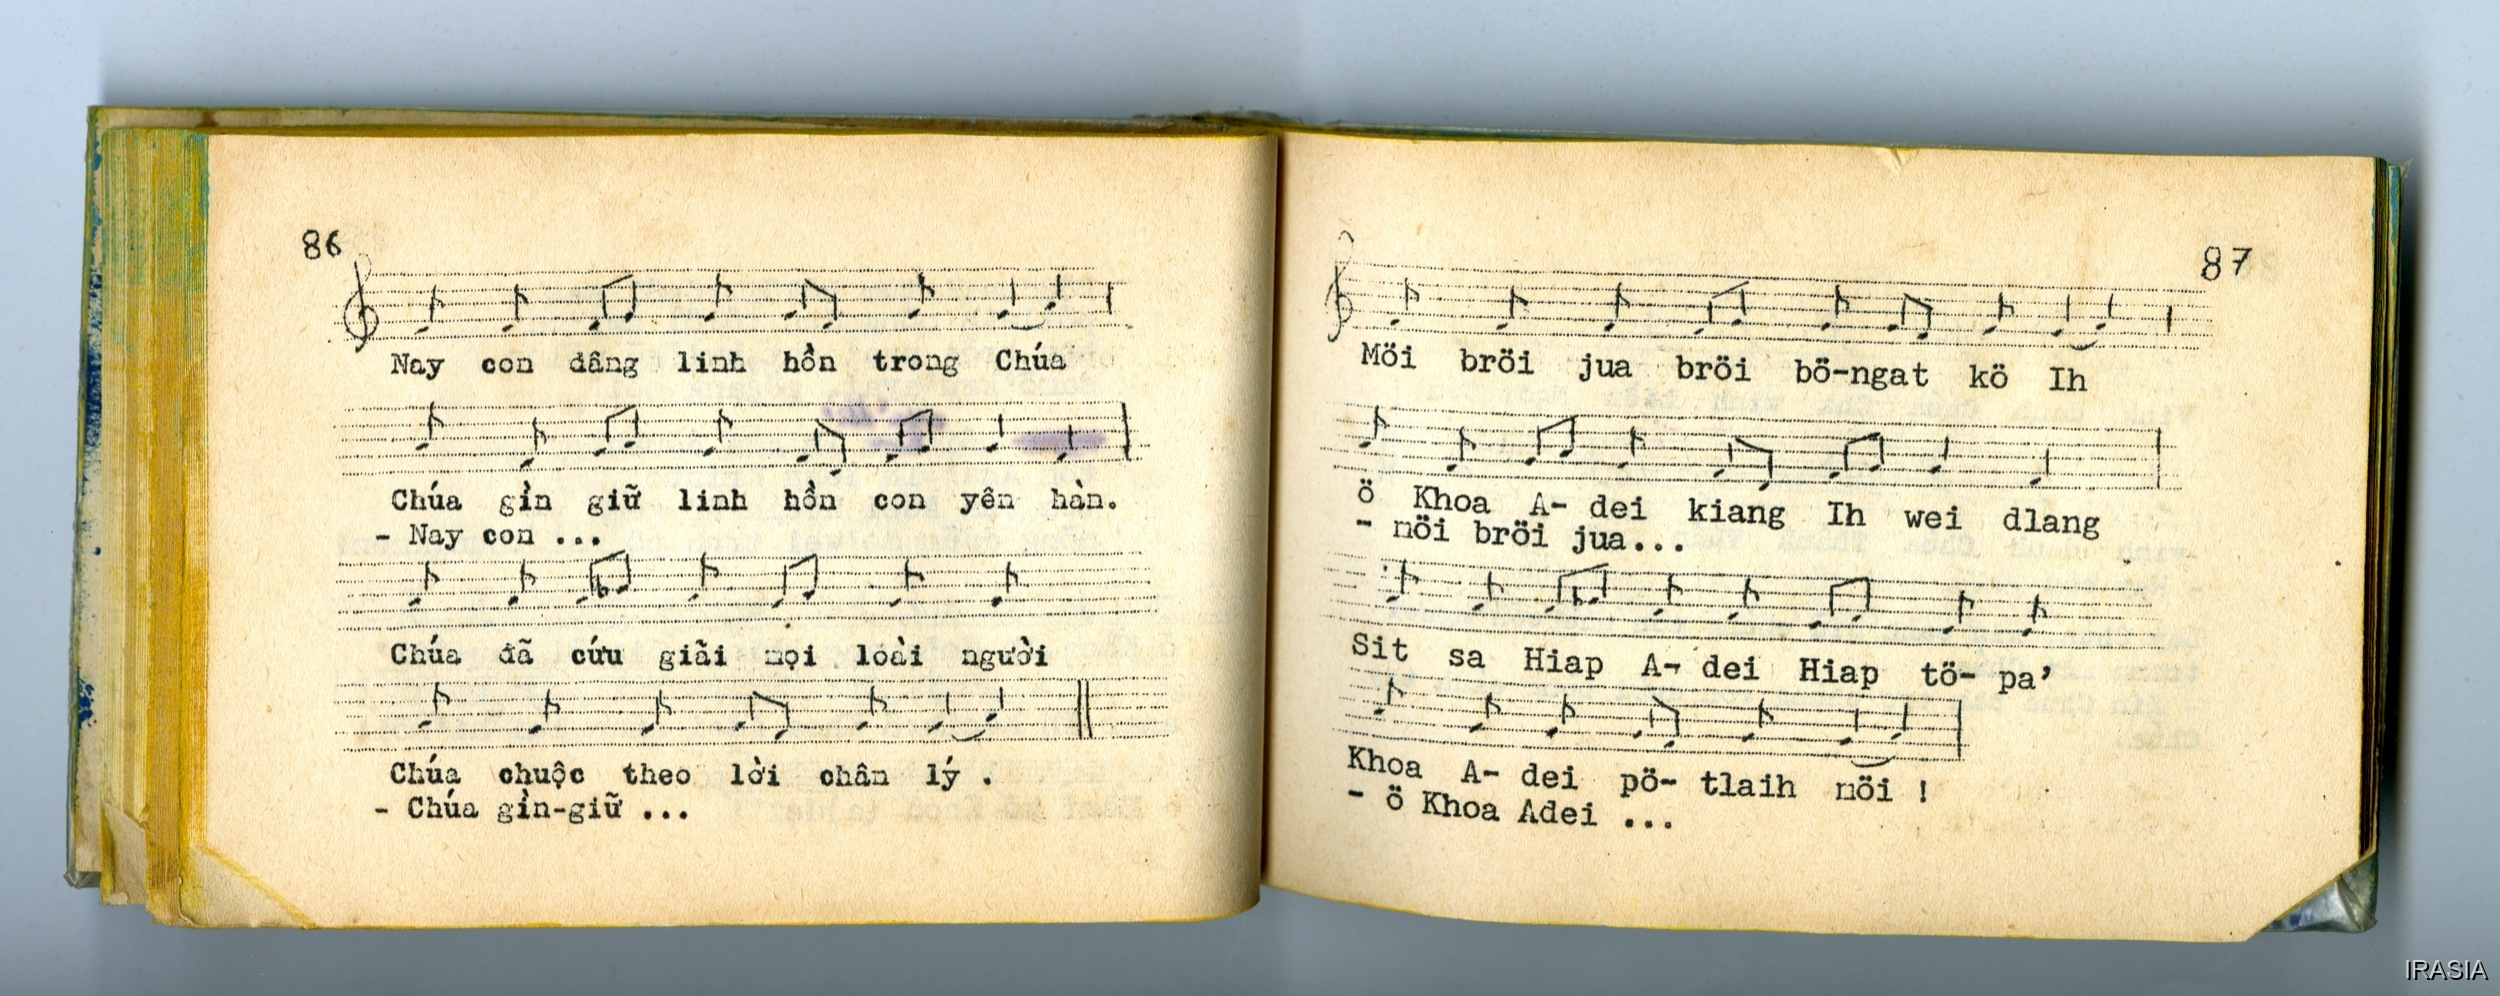 86
Nay con dâng linh hồn trong Chúa
Chúa gìn giữ linh hồn con yên hàn.
- Nay con ...
Chúa đã cứu giải mọi loài người
Chúa chuộc theo lời chân lý .
- Chúa gìn-giữ ...
87
Möi bröi jua bröi bö-ngat kö Ih
ö Khoa A- dei kiang Ih wei dlang
- nöi bröi jua...
Sit sa Hiap A- dei Hiap tö- pa'
Khoa A- dei pö- tlaih nöi !
- ö Khoa Adei ...
IRASIA